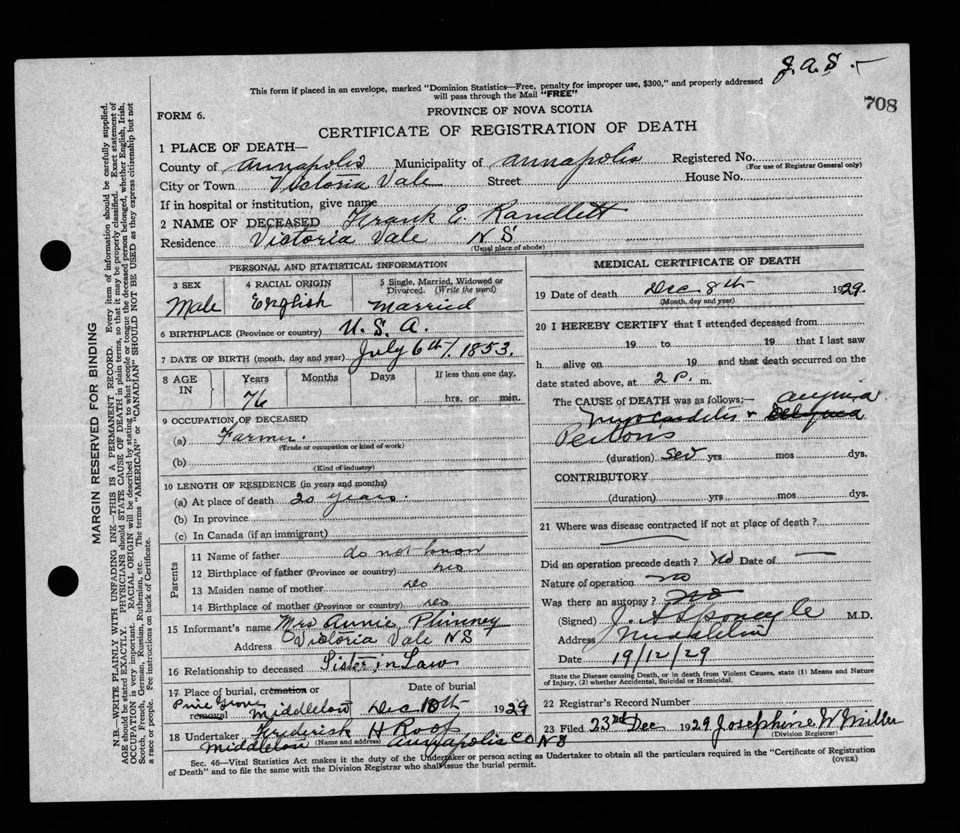 J.A.S.
This form if placed in an envelope, marked "Dominion Statistics—Free, penalty for improper use, $300," and properly addressed
will pass through the Mail "FREE"
708
FORM 6.
PROVINCE OF NOVA SCOTIA
CERTIFICATE OF REGISTRATION OF DEATH
1 PLACE OF DEATH—
County of Annapolis Municipality of Annapolis Registered No.
(For use of Registrar General only)
City or Town Victoria Vale Street House No.
If in hospital or institution, give name
2 NAME OF DECEASED Frank E. Randlett
Residence Victoria Vale N S
(Usual place of abode)
PERSONAL AND STATISTICAL INFORMATION
3 SEX Male
4 RACIAL ORIGIN English
5 Single, Married, Widowed or Divorced. (Write the word) Married
6 BIRTHPLACE (Province or country) U. S. A.
7 DATE OF BIRTH (month, day and year) July 6th/. 1853.
8 AGE IN Years Months Days If less than one day.
76 hrs. or min.
9 OCCUPATION OF DECEASED
(a) Farmer.
(Trade or occupation or kind of work)
(b)
(Kind of industry)
10 LENGTH OF RESIDENCE (in years and months)
(a) At place of death 20 years.
(b) In province
(c) In Canada (if an immigrant)
Parents
11 Name of father do not know
12 Birthplace of father (Province or country)
13 Maiden name of mother
14 Birthplace of mother (Province or country)
15 Informant's name Mrs Annie Phinney
Address Victoria Vale N S
16 Relationship to deceased Sister in Law
17 Place of burial, cremation or removal Pine Grove Middleton
Date of burial Dec 10th 1929
18 Undertaker Frederick H Roop
(Name and address)
Middleton Annapolis CO N S
MEDICAL CERTIFICATE OF DEATH
19 Date of death Dec 8th 1929.
(Month, day and year)
20 I HEREBY CERTIFY that I attended deceased from
19 to 19 that I last saw
h alive on 19 and that death occurred on the
date stated above, at 2 P. m.
The CAUSE OF DEATH was as follows:— angina
myocarditis &
Pectoris
(duration) sev yrs mos dys.
CONTRIBUTORY
(duration) yrs mos dys.
21 Where was disease contracted if not at place of death?
Did an operation precede death? No Date of —
Nature of operation no
Was there an autopsy? No
(Signed) M.D.
Address Middleton
Date 19/12/29
State the Disease causing Death, or in death from Violent Causes, state (1) Means and Nature
of Injury, (2) whether Accidental, Suicidal or Homicidal.
22 Registrar's Record Number
23 Filed 23rd Dec 1929 Josephine W Miller
(Division Registrar)
Sec. 46—Vital Statistics Act makes it the duty of the Undertaker or person acting as Undertaker to obtain all the particulars required in the "Certificate of Registration
of Death" and to file the same with the Division Registrar who shall issue the burial permit.
(OVER)
MARGIN RESERVED FOR BINDING
N.B.—WRITE PLAINLY WITH UNFADING INK—THIS IS A PERMANENT RECORD. Every item of information should be carefully supplied.
AGE should be stated EXACTLY. PHYSICIANS should STATE CAUSE OF DEATH in plain terms, so that it may be properly classified. Exact statement of
OCCUPATION is very important. RACIAL ORIGIN will be described by stating to what people or tongue the deceased person belonged, whether English, Irish,
Scotch, French, German, Russian, Ruthenian, etc. The terms "AMERICAN" or "CANADIAN" SHOULD NOT BE USED as they express citizenship but not
a race or people. Fee instructions on back of Certificate.